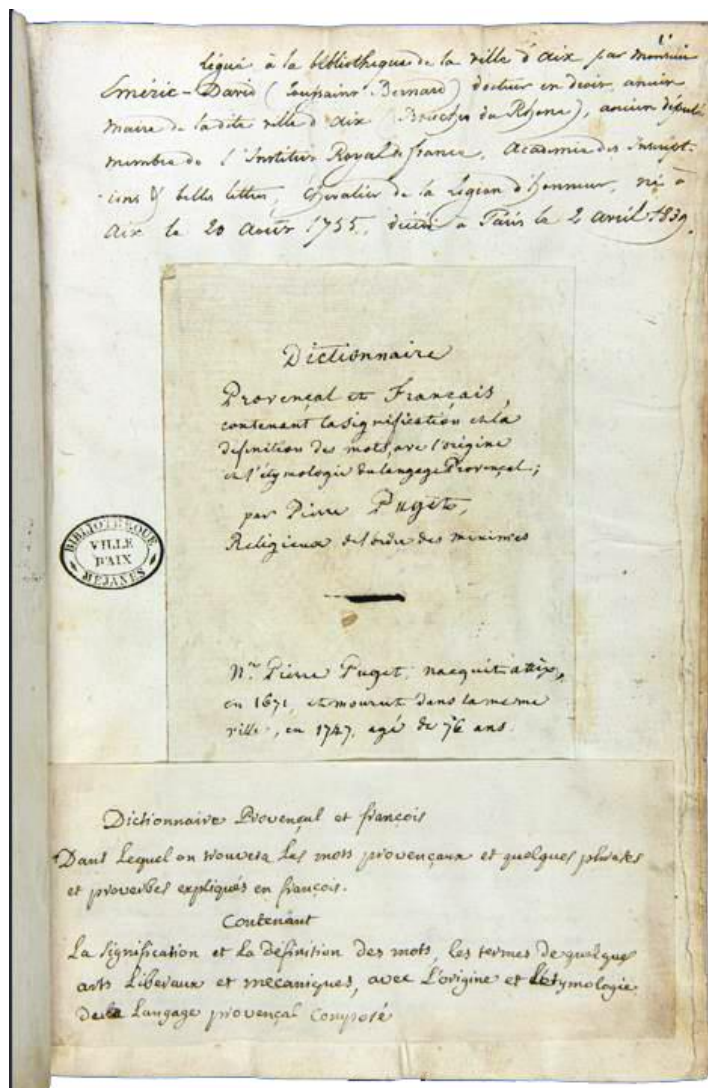 1.
Légué à la bibliotheque de la ville d'aix, par monsieur
Emèric-David (Toussaint-Bernard) docteur en droit, ancien
maire de ladite ville d'aix (Bouches du Rhone), ancien député
membre de l'Institut Royal de france, Academie des Inscript-
-ions & belles lettres, chevalier de la Légion d'honneur, né à
aix le 20 aout 1755, décédé à Paris le 2 avril 1839.
Dictionnaire
Provençal et Français,
contenant la signification et la
definition des mots, avec l'origine
et l'étymologie du langage Provençal;
par Pierre Puget,
Religieux de l'ordre des minimes
BIBLIOTHEQUE
VILLE
D'AIX
MEJANES
Nta Pierre Puget, naequit à aix,
en 1671, et mourut dans la meme
ville, en 1747, agé de 76 ans.
Dictionnaire Provençal et françois
Dans Lequel on trouvera Les mots provençaux et quelques phrases
et proverbes expliqués en françois.
Contenant
La signification et La définition des mots, les termes de quelques
arts Liberaux et mecaniques, avec L'origine et L'etymologie
de la Langage provençal Composé